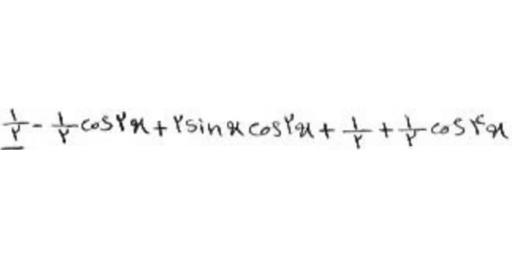 ۱/۲ - ۱/۲ cos۲x + ۲sinx cos۲x + ۱/۲ + ۱/۲ cos۴x